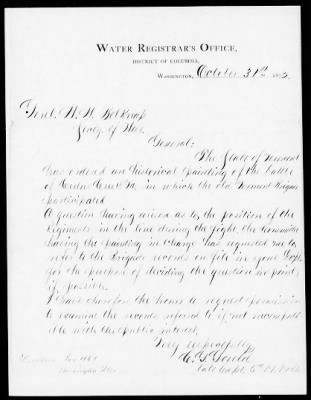 WATER REGISTRAR'S OFFICE,
DISTRICT OF COLUMBIA,
WASHINGTON, October 31st 1872
Genl. W. W. Belknap
Secy. of War.
General:
The State of Vermont
has ordered an historical painting of the battle
of Cedar Creek Va. in which the old Vermont Brigade
participated
A question having arisen as to the position of the
Regiments in the line during the fight, the Committee
having the painting in charge has requested me to
refer to the Brigade records on file in your Dept.
for the purpose of deciding the question in point
if possible.
I have therefore the honor to request permission
to examine the records referred to if not incompati-
ble with the public interest,
Very respectfully
C. F. Gould
Late Capt. 5th Vt. Vols
Box 468
Washington